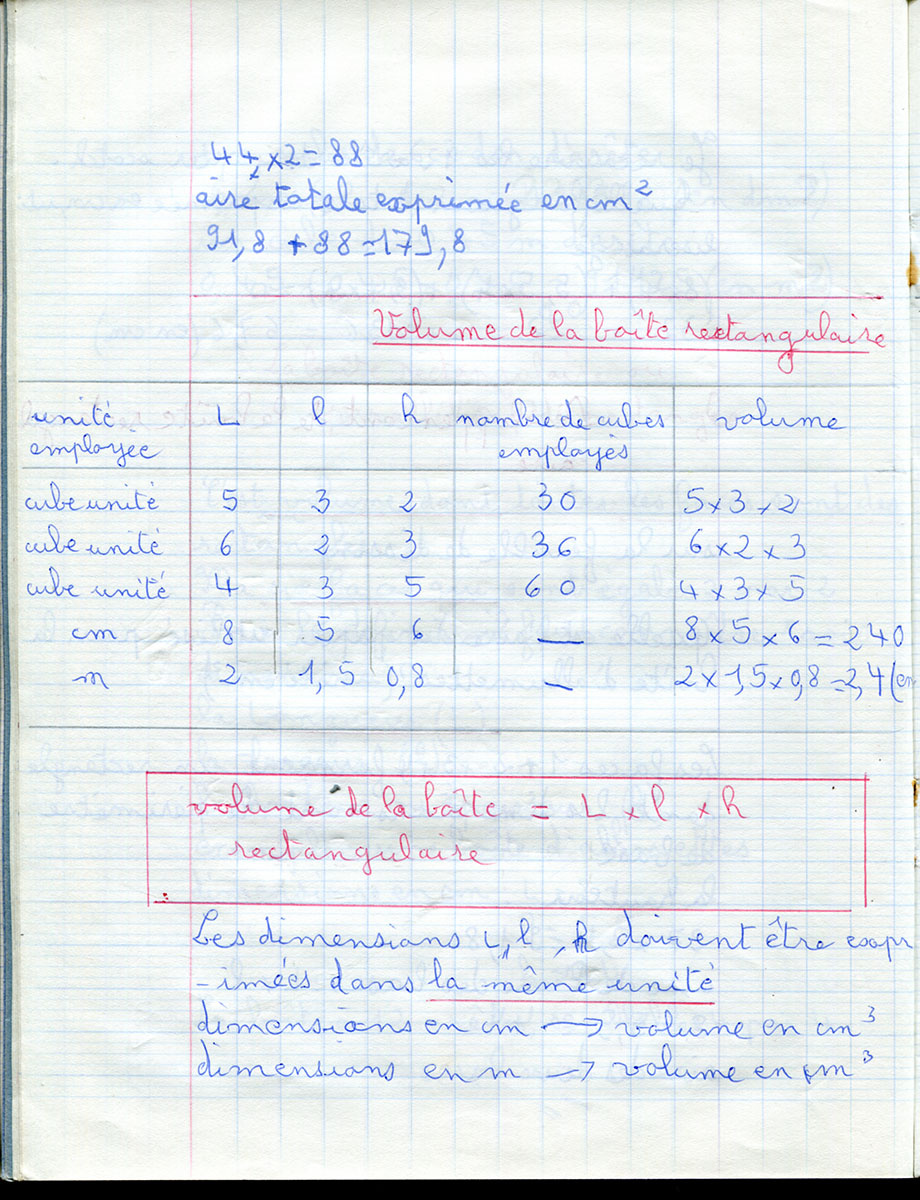 44 × 2 = 88
aire totale exprimée en cm²
91,8 + 88 = 179,8
Volume de la boîte rectangulaire
unité employée L l h nombre de cubes employés volume
cube unité 5 3 2 30 5 × 3 × 2
cube unité 6 2 3 36 6 × 2 × 3
cube unité 4 3 5 60 4 × 3 × 5
cm 8 5 6 — 8 × 5 × 6 = 240
m 2 1,5 0,8 — 2 × 1,5 × 0,8 = 2,4 (en
volume de la boîte = L × l × h
rectangulaire
Les dimensions L, l, h doivent être expr
-imées dans la même unité
dimensions en cm → volume en cm³
dimensions en m → volume en m³